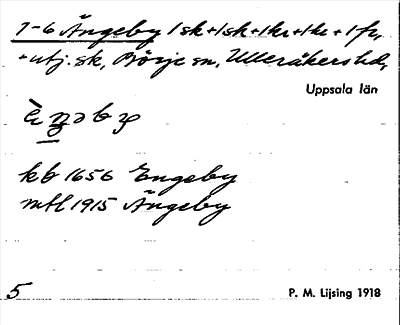 7-6 Ängeby 1 sk+1 sk+1 kr+1 kr+1 fr,
+utj. sk, Börje sn, Ulleråkers hd,
Uppsala län
kb 1656 Engeby
mtl 1915 Ängeby
5 P. M. Lijsing 1918